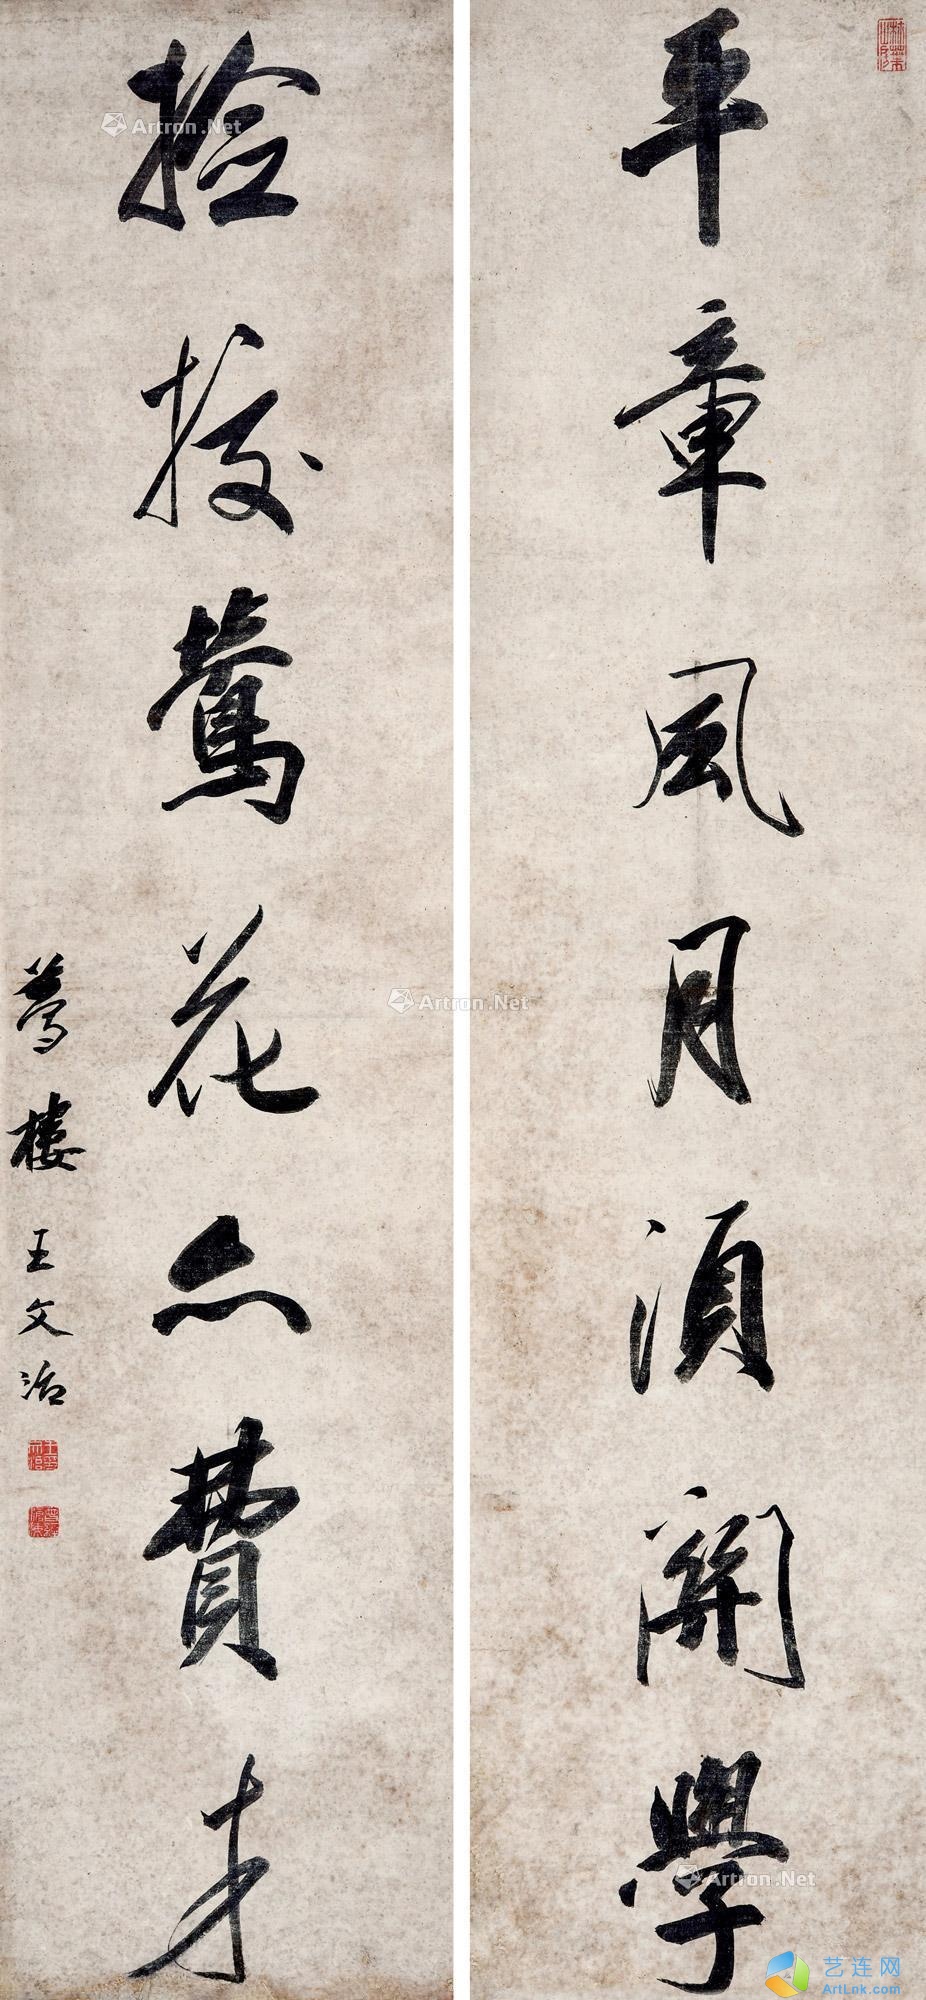 平章風月須關學
撿挍鶯花亦費才
夢樓王文治
Artron.Net
Artron.Net
Artron.Net
艺连网
ArtLok.com